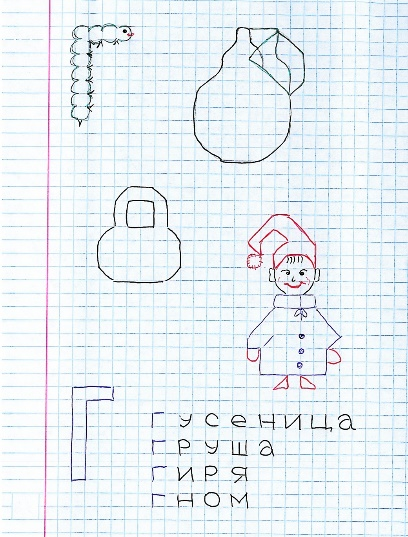 Г
Гусеница
Груша
Гиря
Гном